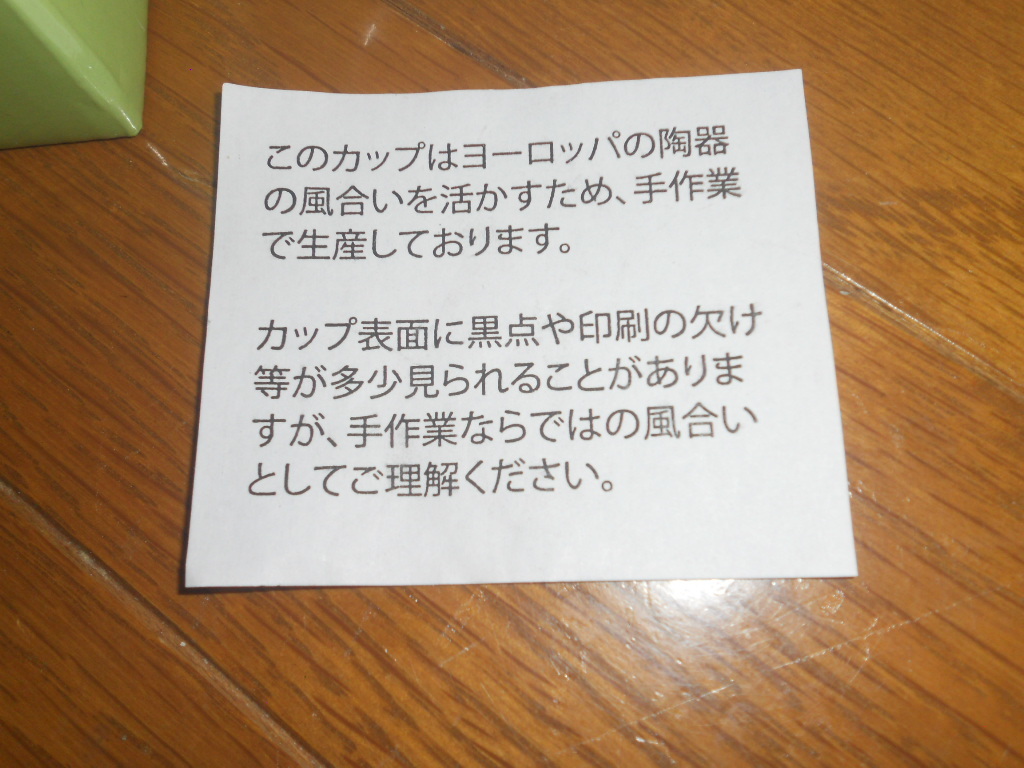 このカップはヨーロッパの陶器
の風合いを活かすため、手作業
で生産しております。
カップ表面に黒点や印刷の欠け
等が多少見られることがありま
すが、手作業ならではの風合い
としてご理解ください。